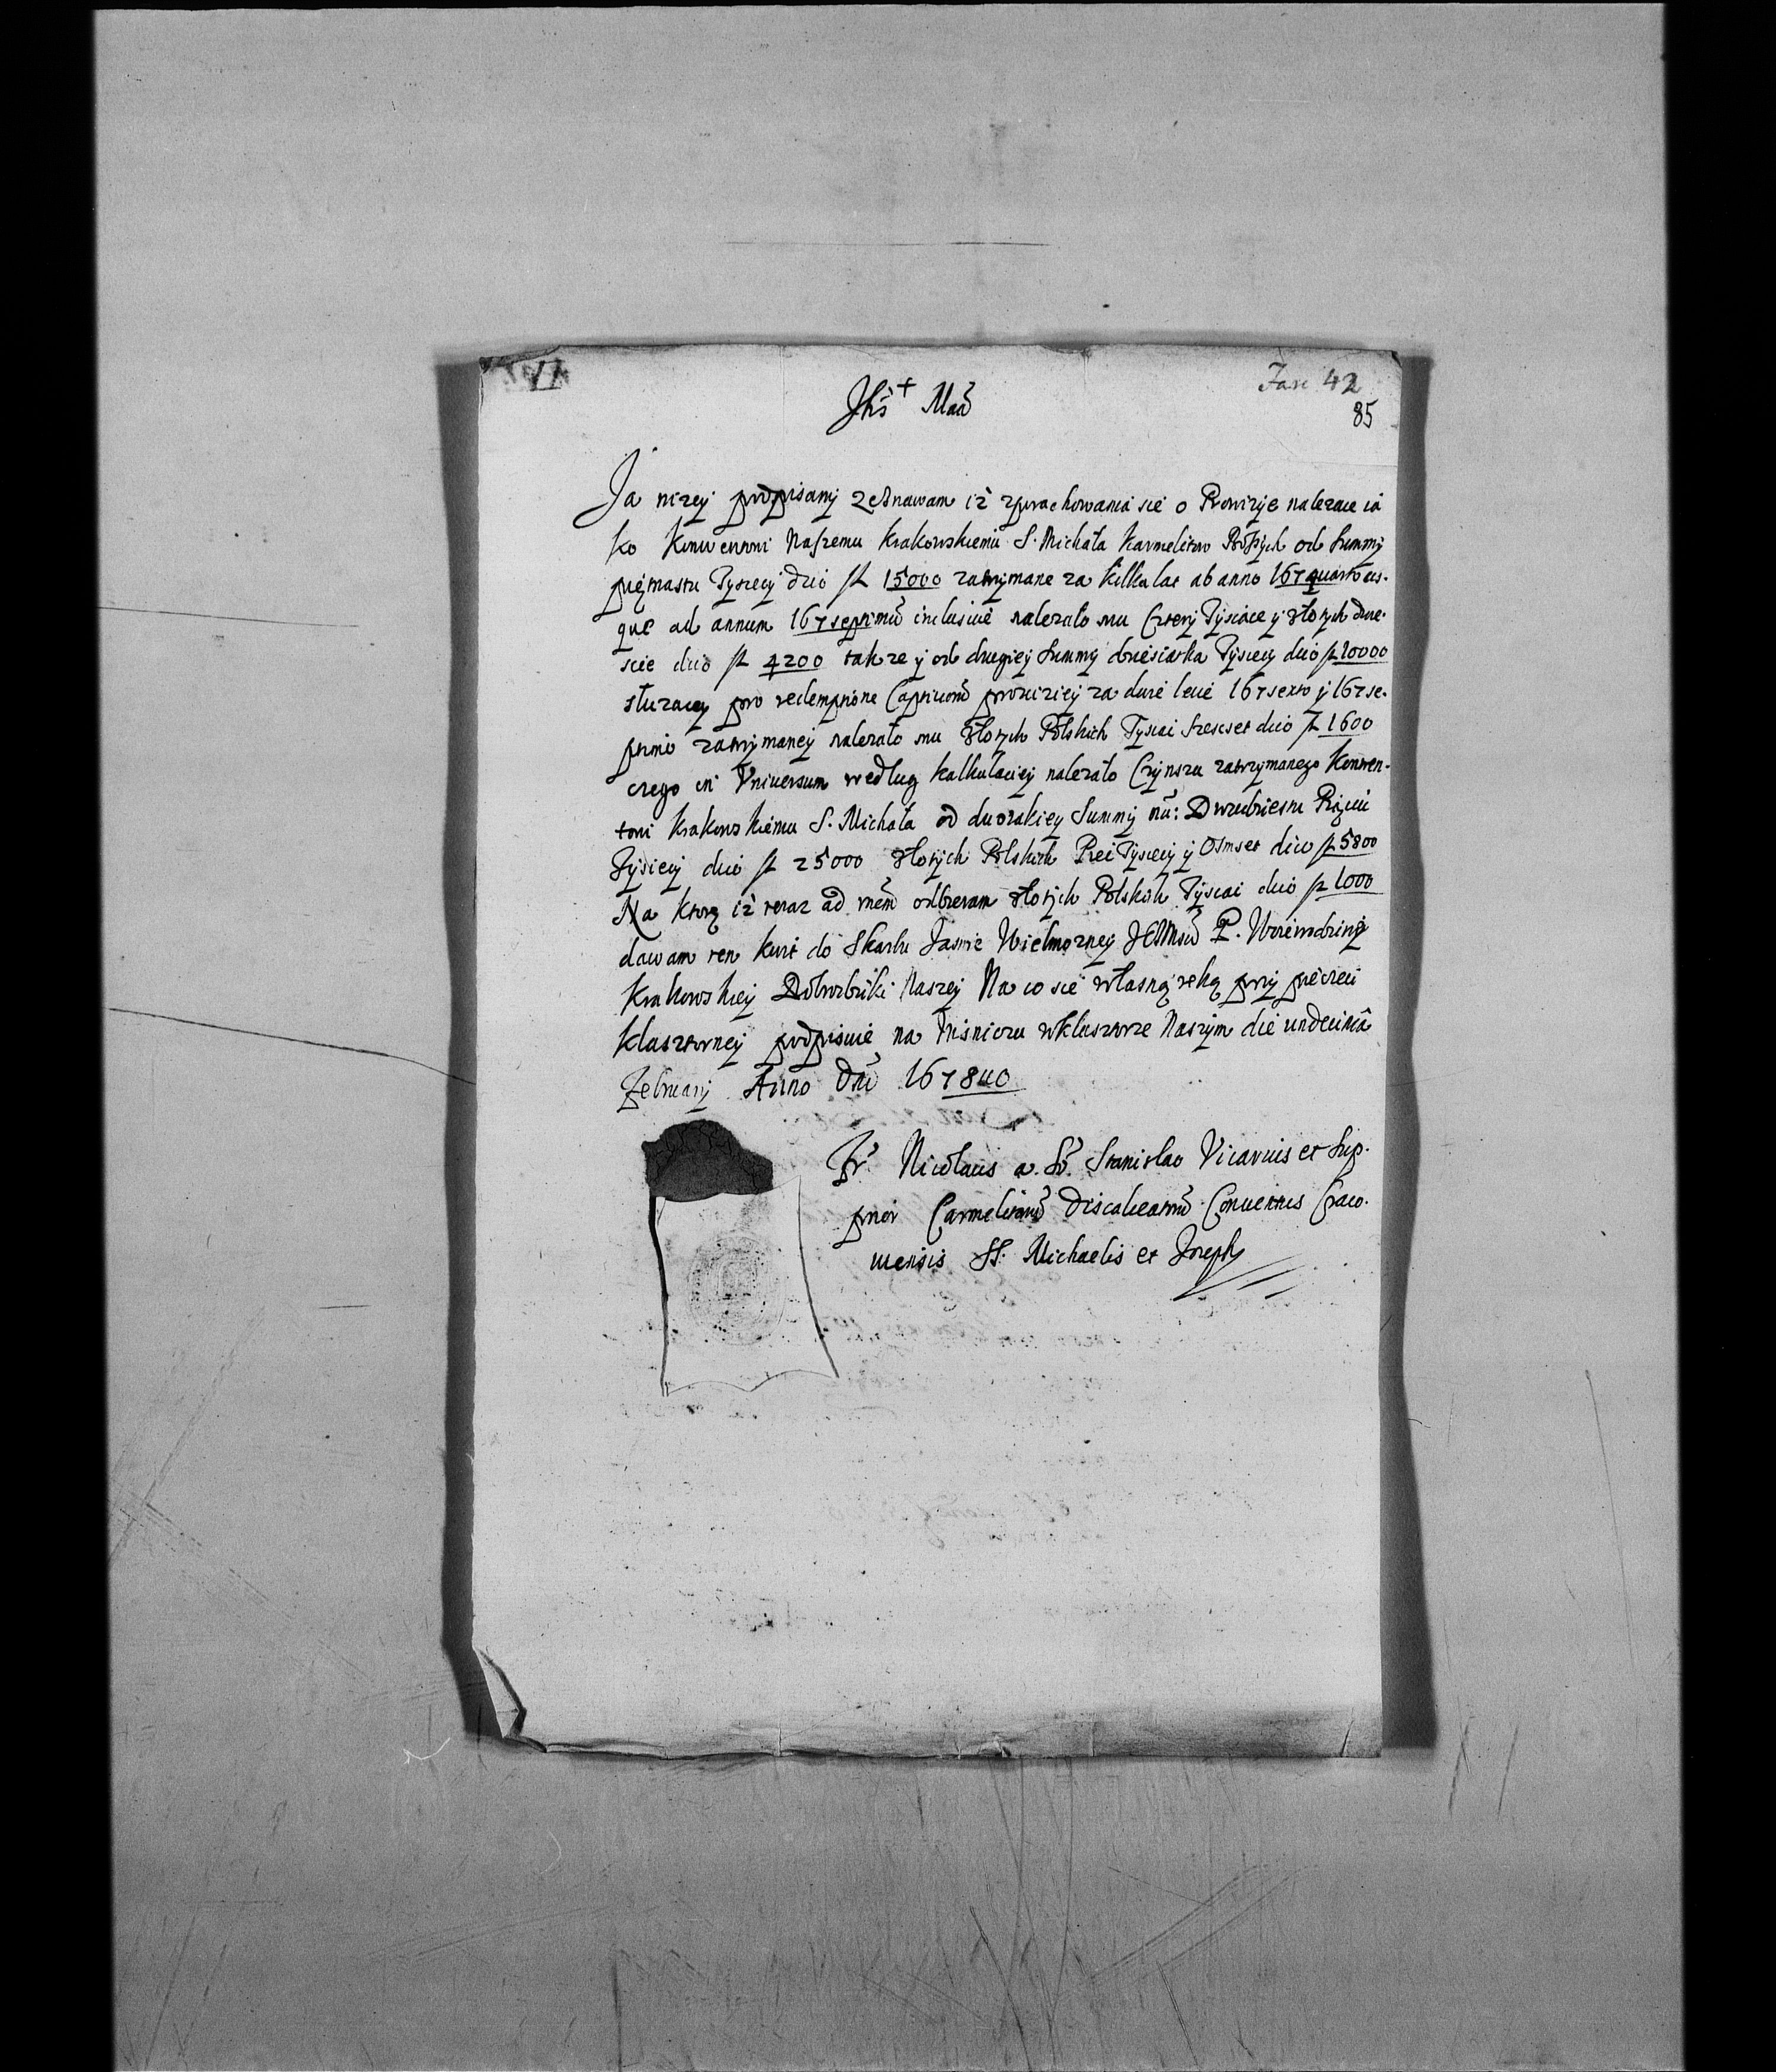 Fasc 42
85
Jhs + Maa
Ja nizey podpisany zeznawam iz zporachowania sie o Prowizye nalezace ia
ko Konwentowi Naszemu Krakowskiemu S. Michała Karmelitow Bosych od Summy
piętnastu Tysiecy dico fl 15000 zatrzymane za kilka lat ab anno 167quarto us-
que ad annum 167septimū inclusiue nalezało mu Cztery Tysiące y złotych dwie-
scie dico fl 4200 takze y od drugiey Summy dziesiątka Tysiecy dico fl 10000
słuzacey pro redemptione Captiuorū prowiziey za dwie lecie 167sexto y 167se-
ptimo zatrzymaney nalezało mu złotych Polskich Tysiac szescset dico fl 1600
czego in Vniuersum według kalkulaciey nalezało Czynszu zatrzymanego Konwen-
towi Krakowskiemu S. Michała od dwoiakiey Summy nū: Dwudziestu Piąciu
Tysiecy dico fl 25000 złotych Polskich Pięć Tysiecy y Osmset dico fl 5800
Na ktorą iz teraz ad rnem odbieram złotych Polskich Tysiac dico fl 1000
dawam ten kwit do Skarbu Jasnie Wielmozney JEMsci P. Woiewodziny
Krakowskiey Dobrodziki Naszey Na co sie własną ręką przy pieczeci
klasztorney podpisuie na Wisniczu w klasztorze Naszym die undecimâ
Februarij Anno Dni 1678uo
Fr. Nicolaus a. So. Stanislao Vicarius et Sup-
prior Carmelitarū Discalceatorū Conuentus Craco-
uiensis SS. Michaelis et Joseph